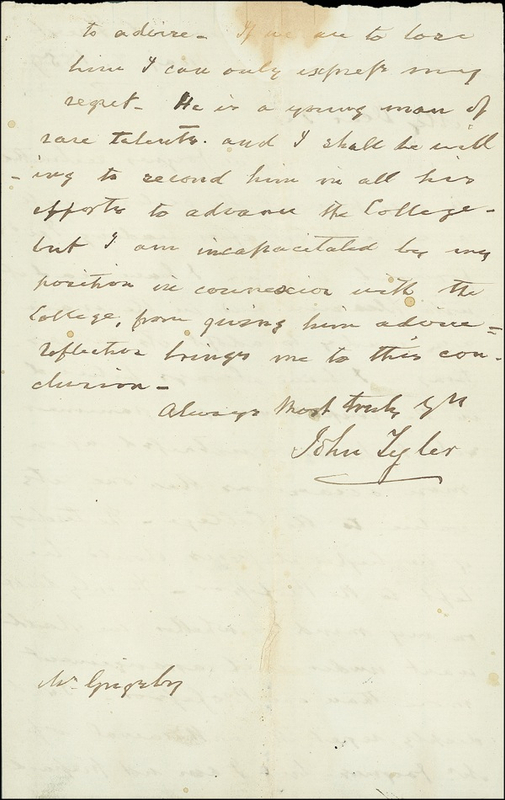 to advise - If we are to lose
him I can only express my
regret - He is a young man of
rare talents. and I shall be will
- ing to second him in all his
efforts to advance the College -
but I am incapacitated by my
position in connexion with the
College, from giving him advice =
reflection brings me to this con-
clusion -
Always Most truly Yrs
John Tyler
Mr Grigsby